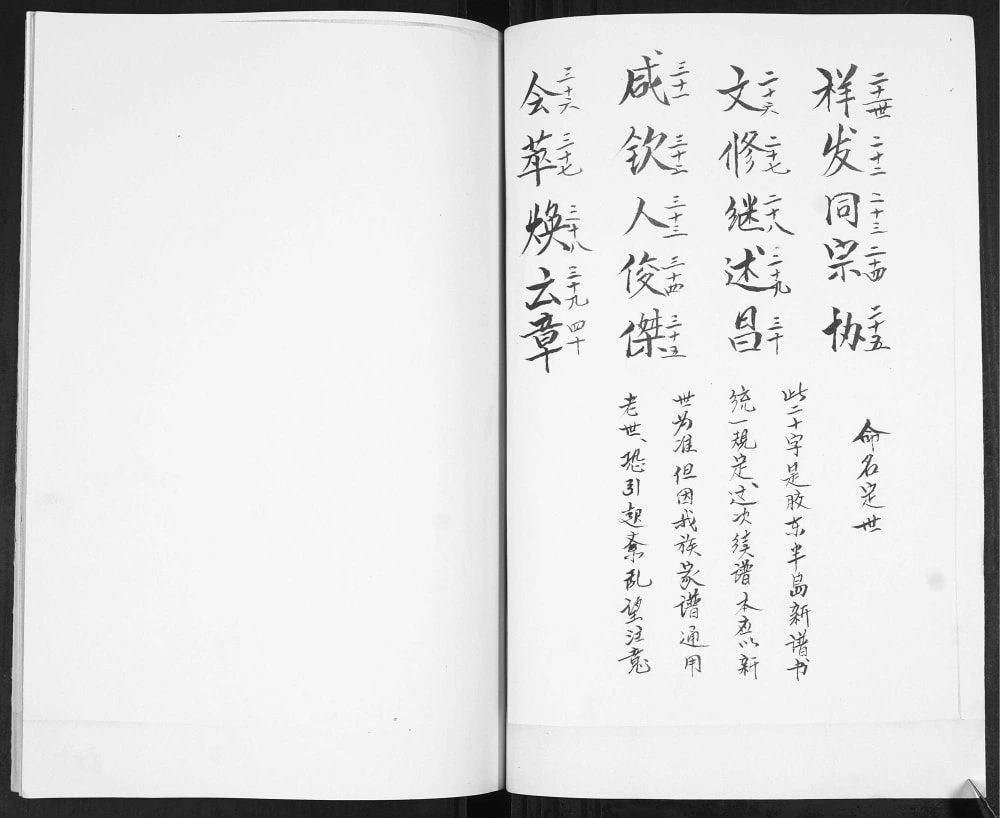 祥二十一世发二十二同二十三宗二十四协二十五
文二十六修二十七继二十八述二十九昌三十
咸三十一钦三十二人三十三俊三十四傑三十五
会三十六萃三十七焕三十八云三十九章四十
命名定世
此二十字是胶东半岛新谱书
统一规定这次续谱本应以新
世为准但因我族家谱通用
老世、恐引起紊乱望注意